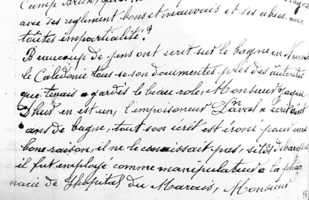 avec ses reglement bons et mauvais et ses abus, avec
toutes impartialité?
Beaucoup de gens ont ecrit sur le bagne en
le Caledonie tous se son documentes près des autorites
que tenais a gardes le beau role, Monsieur Jacque
Dhur en est un, l'empoisonneur
ans de bagne, tout son ecrit est eroné pour une
bone raison, il ne le connaissait pas,
il fut employé comme manipulateur a la phar
macie de l'hopital du Marais, Monsieur